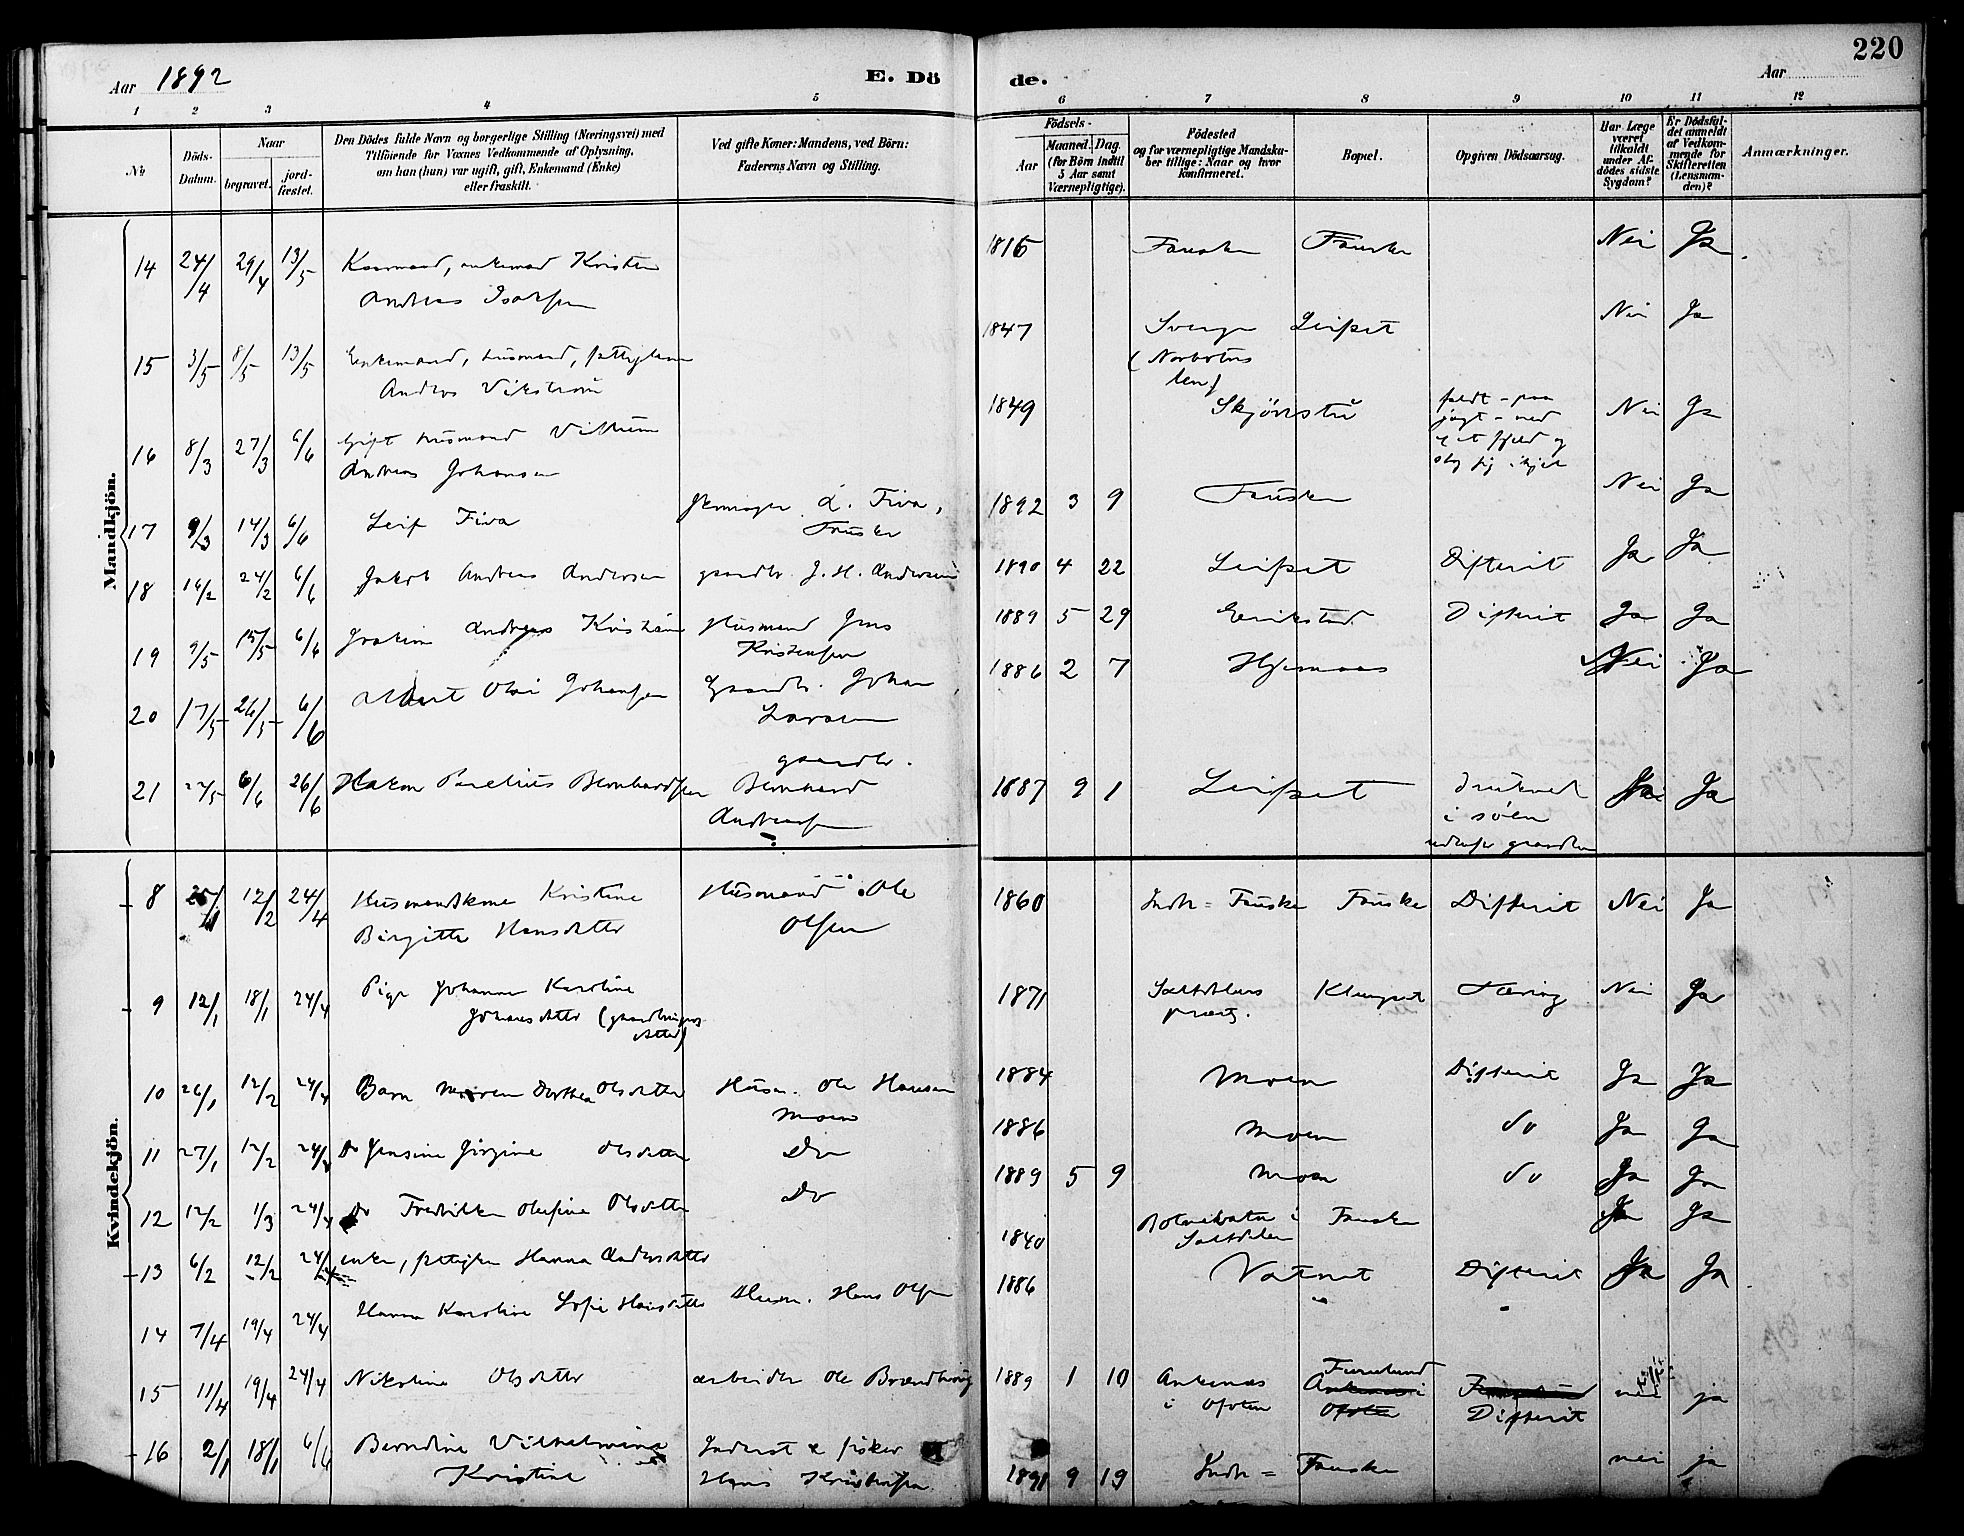 220
Aar 1892 E. Dö de. Aar
1 2 3 4 5 6 7 8 9 10 11 12
No
Döds-Datum.
Naar
begravet.
jord-fæstet.
Den Dödes fulde Navn og borgerlige Stilling (Næringsvei) med
Tilföiende for Voxnes Vedkommende af Oplysning,
om han (hun) var ugift, gift, Enkemand (Enke)
eller fraskilt.
Ved gifte Koner: Mandens, ved Börn:
Faderens Navn og Stilling.
Födsels-
Aar
Maaned. Dag.
(for Börn indtil
5 Aar samt
Værnepligtige).
Födested
og for værnepligtige Mandska-
ber tillige: Naar og hvor
konfirmeret.
Bopæl.
Opgiven Dödsaarsag.
Har Læge
været
tilkaldt
under Af-
dödes sidste
Sygdom?
Er Dödsfal-
det anmeldt
af Vedkom-
mende for
Skifteretten
(Lensman-
den)?
Anmærkninger.
Mandkjön.
14 24/4 29/4 13/5 enkemand Kristen 1815 Fauske Fauske Nei Ja
Andreas Isaksen
15 3/5 8/5 13/5 Enkemand, husmand, 1847 Sverge Leifset Nei Ja
Anders Vikström (Norbotns
len)
16 8/3 27/3 6/6 Gift husmand Vilhelm 1849 Skjönstu faldt paa Nei Ja
Andreas Johansen jagt ned
et fjeld og
slog sig ihjel
17 9/3 14/3 6/6 Leif Fiva L. Fiva, 1892 3 9 Fauske Nei Ja
Fauske
18 16/2 24/2 6/6 Jakob Andreas Andersen gaardbr. J. H. Andersen 1890 4 22 Leifset Difterit Ja Ja
19 9/5 15/5 6/6 Joakim Andreas Kristian Husmand Jens 1889 5 29 Erikstad Difterit Ja Ja
Kristensen
20 17/5 26/5 6/6 Albert Olai Johansen Gaardbr. Johan 1886 2 7 Hjemaas Nei Ja
Larsen
21 6/6 26/6 Hakon Parelius Bernhardsen gaardbr. 1887 9 1 Leifset druknet Ja
Bernhard i söen
Andreassen
Kvindekjön.
8 12/2 24/4 Husmandskone Kristine Husmand Ole 1860 Indr = Fauske Fauske Difterit Nei Ja
Birgitte Hansdatter Olsen
9 12/1 18/1 24/4 Pige Johanna Karoline 1871 Saltdalens Klungset Tæring Nei Ja
Johansdatter præstg.
10 26/1 12/2 24/4 Barn Maren Dorthea Olsdatter Husm. Ole Hansen 1884 Moen Difterit Ja Ja
Moen
11 27/1 12/2 24/4 Do Jensine Jörgine Olsdatter Do 1886 Moen do Ja Ja
12 12/2 1/3 24/4 Do Fredrikke Olufine Olsdatter Do 1889 5 9 Moen do Ja Ja
13 6/2 12/2 24/4 enke, Hanna Andersdatter 1840 i Fauske Ja Ja
Saltdalen
14 7/4 19/4 24/4 Hanna Karoline Sofie Hansdatter Husm. Hans Olsen 1886 Vatnet Difterit Ja Ja
15 11/4 19/4 24/4 Nikoline Olsdatter arbeider Ole Brændhaug 1889 1 10 Ankenæs Furulund nei ja
i Ofoten Ankenæs i Ofoten Difterit
16 2/1 18/1 6/6 Berndine Vilhelmine Inderst & fisker 1891 9 19 Indr = Fauske nei ja
Kristine Hans Kristensen